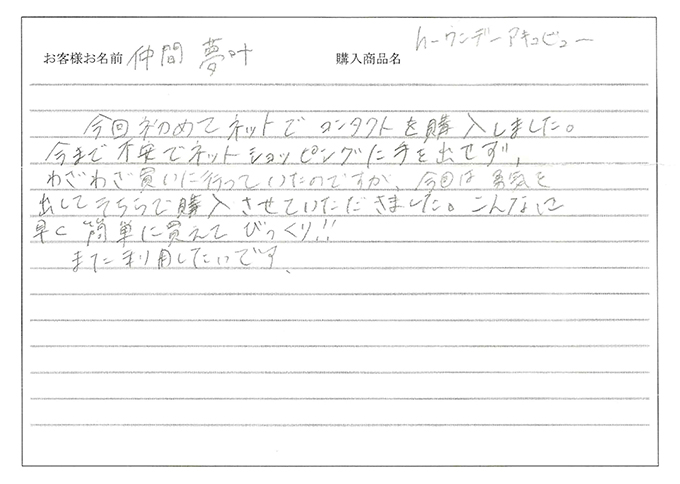 お客様お名前 仲間 夢叶 購入商品名 ワンデーアキュビュー
今回初めてネットでコンタクトを購入しました。
今まで不安でネットショッピングに手を出せず、
わざわざ買いに行っていたのですが、今回は勇気を
出してそちらで購入させていただきました。こんなに
早く簡単に買えてびっくり!!
また利用したいです。